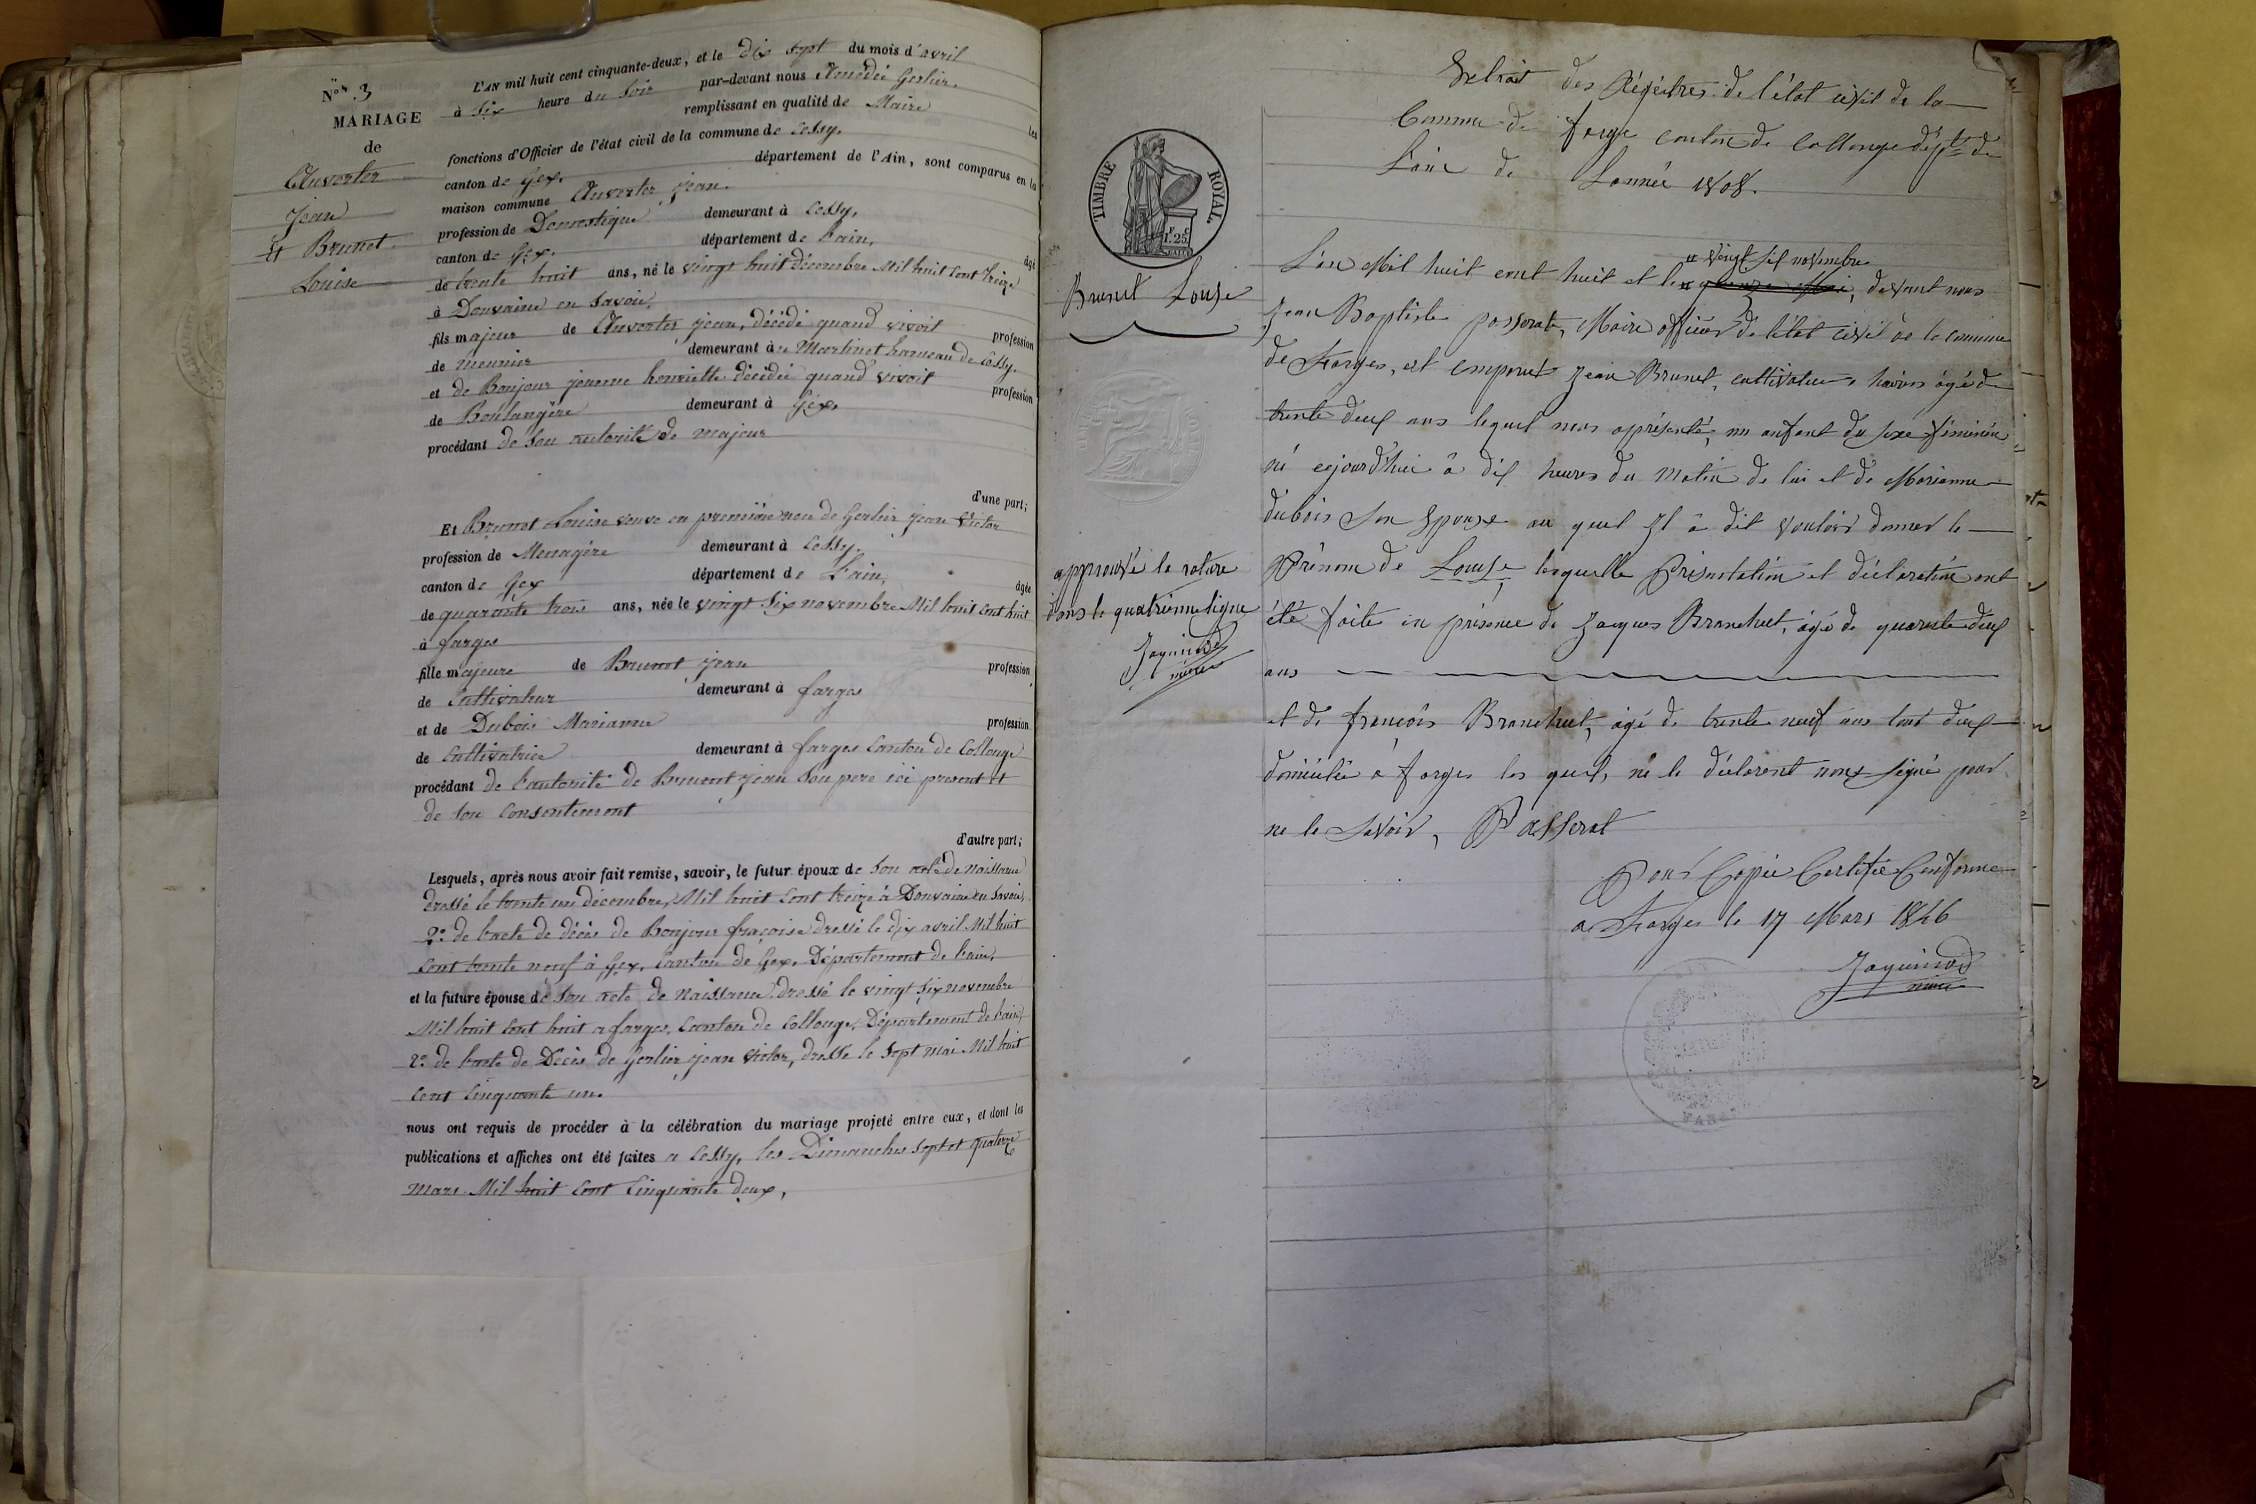 Nos 3
MARIAGE
de
Anverter
Jean
Et Brunet
Louise
L'AN mil huit cent cinquante-deux, et le Dix Sept du mois d'avril
à Six heure du Soir par-devant nous Amédée Gerlier,
remplissant en qualité de Maire les
fonctions d'Officier de l'état civil de la commune de Cessy,
canton de Gex, département de l'Ain, sont comparus en la
maison commune Anverter jean.
profession de Domestique demeurant à Cessy,
canton de Gex. département de l'ain, âgé
de trente huit ans, né le vingt huit décembre Mil huit Cent treize
à Douvaine en Savoie,
fils majeur de Anverter jean, décédé quand vivoit profession
de meunier demeurant à Martinet hameau de Cessy.
et de Bonjour jeanne henriette décédée quand vivoit profession
de Boulangère demeurant à Gex,
procédant de Son autorité de majeur
d'une part;
Et Brunet Louise veuve en première noce de Gerlier jean Victor
profession de Menagère demeurant à Cessy.
canton de Gex département de l'ain, âgée
de quarante trois ans, née le vingt Six novembre Mil huit Cent huit
à farges
fille majeure de Brunet jean profession
de Cultivateur demeurant à farges
et de Dubois Marianne profession
de Cultivatrice demeurant à farges Canton de Collonge
procédant de l'autorité de Brunet jean Son pere ici present et
de Son Consentement
d'autre part;
Lesquels, après nous avoir fait remise, savoir, le futur époux de Son acte de Naissance
dressé le trente un décembre, Mil huit Cent treize à Douvaine en Savoie,
2o de l'acte de décès de Bonjour fraçoise dressé le dix avril Mil huit
Cent trente neuf à Gex, Canton de Gex, Département de l'ain,
et la future épouse de Son acte de Naissance dressé le vingt Six novembre
Mil huit Cent huit a farges, Canton de Collonge, Département de l'ain,
2o de l'acte de Décès de Gerlier jean Victor, dressé le Sept mai Mil huit
Cent Cinquante un.
nous ont requis de procéder à la célébration du mariage projeté entre eux, et dont les
publications et affiches ont été faites a Cessy, les Dimanches Sept et quatorze
mars Mil huit Cent Cinquante Deux,
TIMBRE ROYAL.
1F 25C
Brunet Louise
approuvé la rature
dans le quatrième ligne
Jaquinod
maire
Extrait des Régistres de l'état civil de la
Commune de farge canton de Collonge dépt de
L'ain de L'année 1808.
vingt six novembre
L'an Mil huit cent huit et le, devant nous
Jean Baptiste passerat, Maire officier de l'état civil de la commune
de Farges, est comparut Jean Brunet, cultivateur, âgé de
trente deux ans lequel nous a présenté, un enfant du sexe féminin
né cejourd'hui à dix heures du Matin de lui et de Marianne
dubois Son Epouse au quel Il a dit vouloir donner le
Prénom de Louise, lesquelle Présentation et déclaration ont
été faite en présence de Jacques Branchut, agé de quarante deux
ans
et de françois Branchut, agé de trente neuf ans tout deux
domicilié à farges les quels, ne le déclarent non signé pour
ne le Savoir, Passerat
Pour Copie Certifiée Conforme
a Farges le 17 Mars 1846
Jaquinod
maire